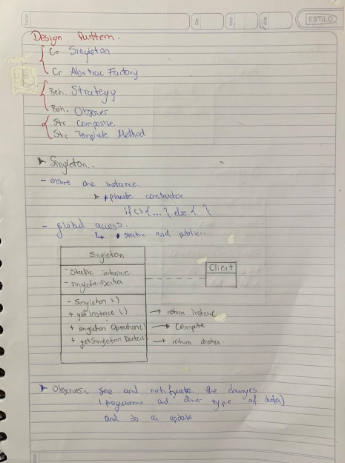 ESTILO
Design Pattern.
Cr Singleton
Cr Abstrac Factory
Beh. Strategy
Beh. Observer
Str. Composite
Str. Template Method
Singleton.
- ensure one instance.
private constructor
if () { ... } else { }
- global access.
static and public.
Singleton
- Static instance
- singletonDecta
Client
- Singleton ()
+ getInstance () → return instance
+ singleton Operation → Compute
+ getSingleton → return
Observer: see and the changes
(programme and other type of)
and do a update